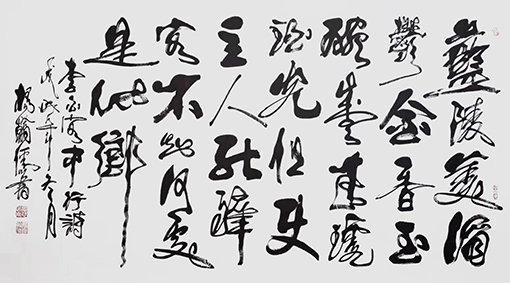 蘭陵美酒
鬱金香玉
碗盛來琥
珀光但使
主人能醉
客不知何處
是他鄉
李白客中行詩
戊戌年冬月
楊書